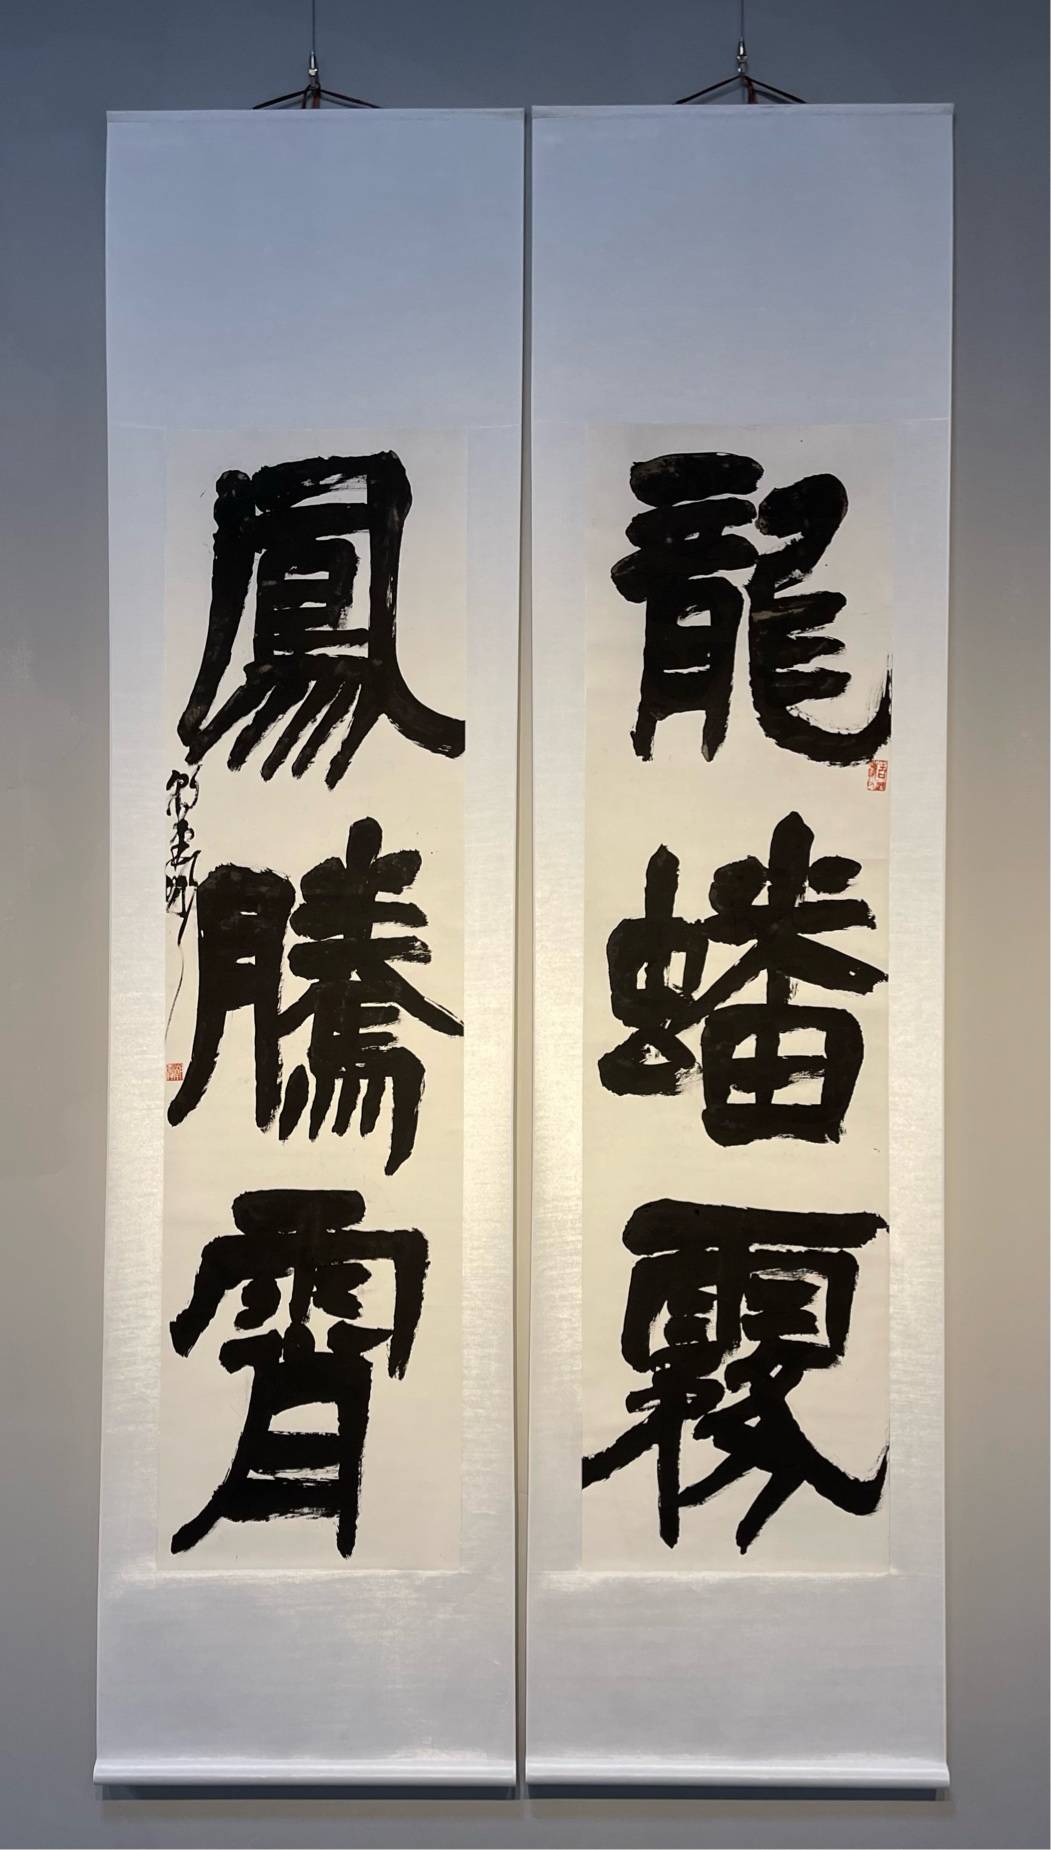 龍蟠霧
鳳騰霄